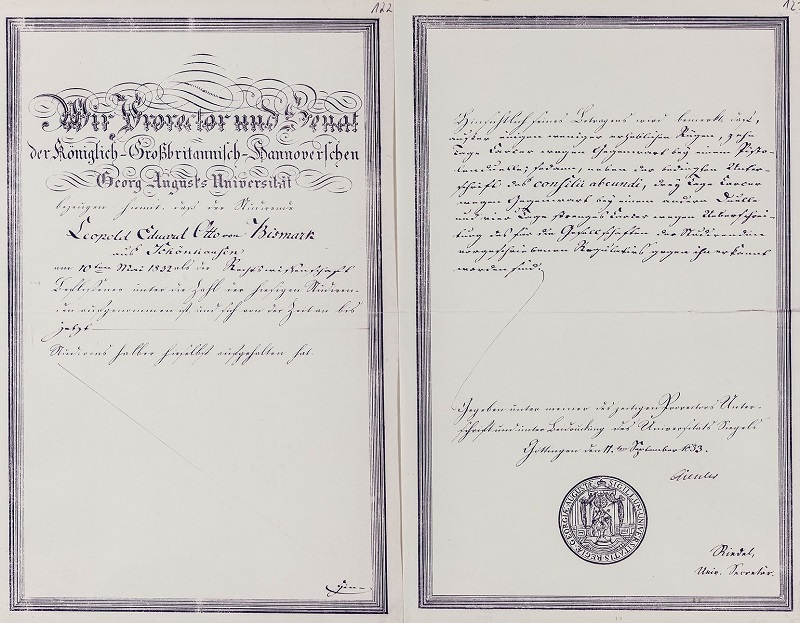 122
Wir Prorector und Senat
der Königlich-Großbritannisch-Hannoverschen
Georg Augusts Universität
bezeugen hiemit, daß der Studirende
Leopold Eduard Otto von Bismark
aus Schönhausen
am 10ten Mai 1832 als der Rechtswissenschaft
Beflissener unter die Zahl der hiesigen Studiren-
den aufgenommen ist und sich von der Zeit an bis
jetzt
Studirens halber hieselbst aufgehalten hat.
123
Hinsichtlich seines Betragens wird bemerkt daß,
außer einigen weniger erheblichen Rügen, zehn
Tage Carcer wegen Gegenwart bey einem Pisto-
lenduelle; sodann, neben der bedingten Unter-
schrift des consilii abeundi, drey Tage Carcer
wegen Gegenwart bey einem andern Duelle
und vier Tage strenges Carcer wegen Ueberschrei-
tung des für die Gesellschaften der Studirenden
vorgeschriebenen Regulativs gegen ihn erkannt
worden sind.
Gegeben unter meiner des zeitigen Prorectors Unter-
schrift und unter Bedrückung des Universitäts Siegels
Göttingen den 11ten September 1833.
SIGILLUM UNIVERSITATIS REGIAE GEORGIAE AUGUSTAE
Riedel,
Univ. Secretär.